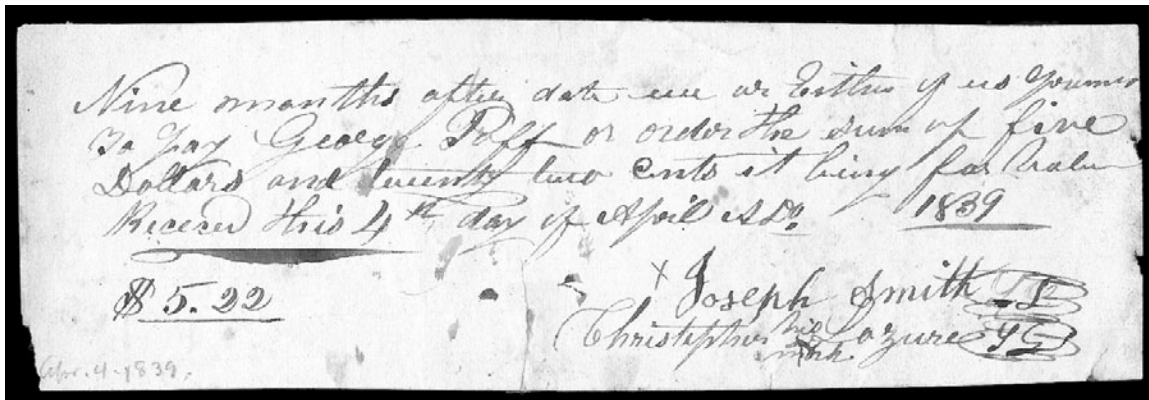 Nine months after date we or Either of us promis
To pay George Poff or order the sum of five
Dollars and twenty two cents it being for value
Receved this 4th day of April AD. 1839
$ 5.22
x Joseph Smith
Christopher his mark Lozure
Apr. 4-1839.